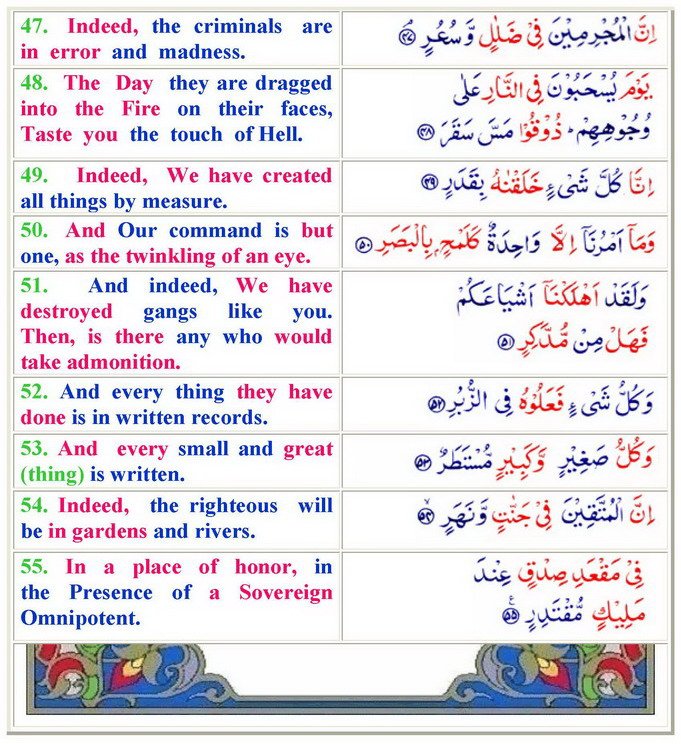 47. Indeed, the criminals are
in error and madness.
اِنَّ الْمُجْرِمِيْنَ فِيْ ضَلٰلٍ وَّسُعُرٍ ﴿۴۷﴾
48. The Day they are dragged
into the Fire on their faces,
Taste you the touch of Hell.
يَوْمَ يُسْحَبُوْنَ فِي النَّارِ عَلٰى
وُجُوْهِهِمْ ؕ ذُوْقُوْا مَسَّ سَقَرَ ﴿۴۸﴾
49. Indeed, We have created
all things by measure.
اِنَّا كُلَّ شَیْءٍ خَلَقْنٰهُ بِقَدَرٍ ﴿۴۹﴾
50. And Our command is but
one, as the twinkling of an eye.
وَمَآ اَمْرُنَآ اِلَّا وَاحِدَةٌ كَلَمْحٍۭ بِالْبَصَرِ ﴿۵۰﴾
51. And indeed, We have
destroyed gangs like you.
Then, is there any who would
take admonition.
وَلَقَدْ اَهْلَكْنَآ اَشْيَاعَكُمْ
فَهَلْ مِنْ مُّدَّكِرٍ ﴿۵۱﴾
52. And every thing they have
done is in written records.
وَكُلُّ شَیْءٍ فَعَلُوْهُ فِی الزُّبُرِ ﴿۵۲﴾
53. And every small and great
(thing) is written.
وَكُلُّ صَغِيْرٍ وَّكَبِيْرٍ مُّسْتَطَرٌ ﴿۵۳﴾
54. Indeed, the righteous will
be in gardens and rivers.
اِنَّ الْمُتَّقِيْنَ فِيْ جَنّٰتٍ وَّنَهَرٍ ﴿۵۴﴾
55. In a place of honor, in
the Presence of a Sovereign
Omnipotent.
فِيْ مَقْعَدِ صِدْقٍ عِنْدَ
مَلِيْكٍ مُّقْتَدِرٍ ﴿۵۵﴾